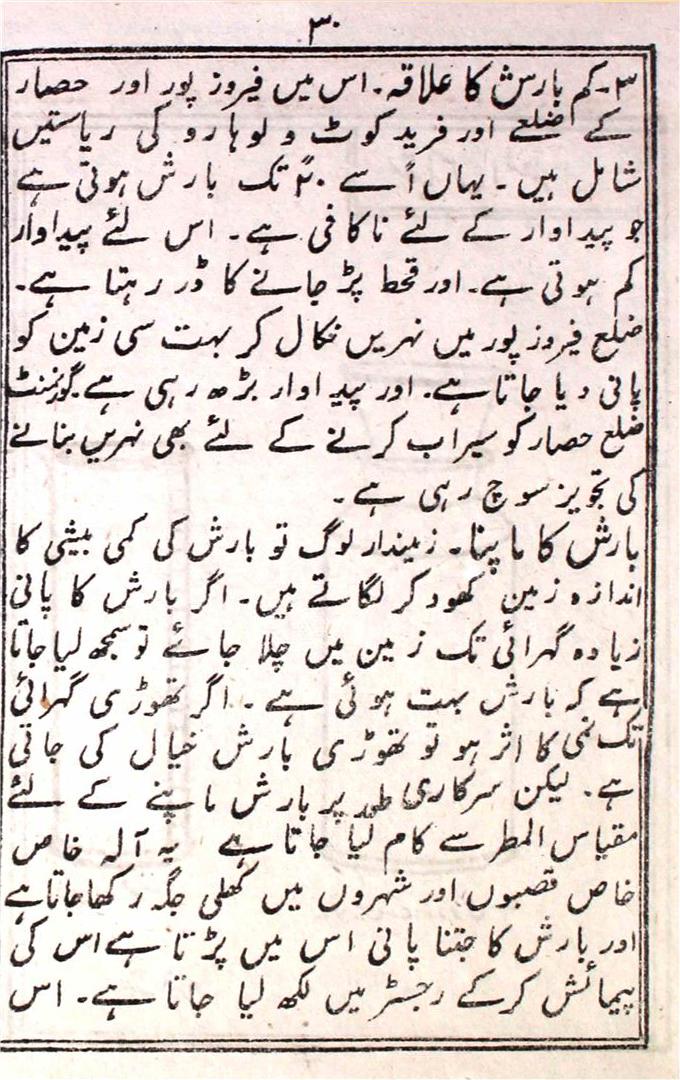 ۳۰
۳۔ کم بارش کا علاقہ۔ اس میں فیروز پور اور حصار
کے اضلعے اور فرید کوٹ و لوہارو کی ریاستیں
شامل ہیں۔ یہاں سے ۲۰ً تک بارش ہوتی ہے
جو پیداوار کے لئے ناکافی ہے۔ اس لئے پیداوار
کم ہوتی ہے۔ اور قحط پڑ جانے کا ڈر رہتا ہے۔
ضلع فیروز پور میں نہریں نکال کر بہت سی زمین کو
پانی دیا جاتا ہے۔ اور پیداوار بڑھ رہی ہے گورنمنٹ
ضلع حصار کو سیراب کرنے کے لئے بھی نہریں بنانے
کی تجویز سوچ رہی ہے۔
بارش کا ماپنا۔ زمیندار لوگ تو بارش کی کمی بیشی کا
اندازہ زمین کھود کر لگاتے ہیں۔ اگر بارش کا پانی
زیادہ گہرائی تک زمین میں چلا جائے تو سمجھ لیا جاتا
ہے کہ بارش بہت ہوئی ہے۔ اگر تھوڑی گہرائی
تک نمی کا اثر ہو تو تھوڑی بارش خیال کی جاتی
ہے۔ لیکن سرکاری طور پر بارش ماپنے کے لئے
مقیاس المطر سے کام لیا جاتا ہے یہ آلہ خاص
خاص قصبوں اور شہروں میں کھلی جگہ رکھا جاتا ہے
اور بارش کا جتنا پانی اس میں پڑتا ہے اس کی
پیمائش کرکے رجسٹر میں لکھ لیا جاتا ہے۔ اس